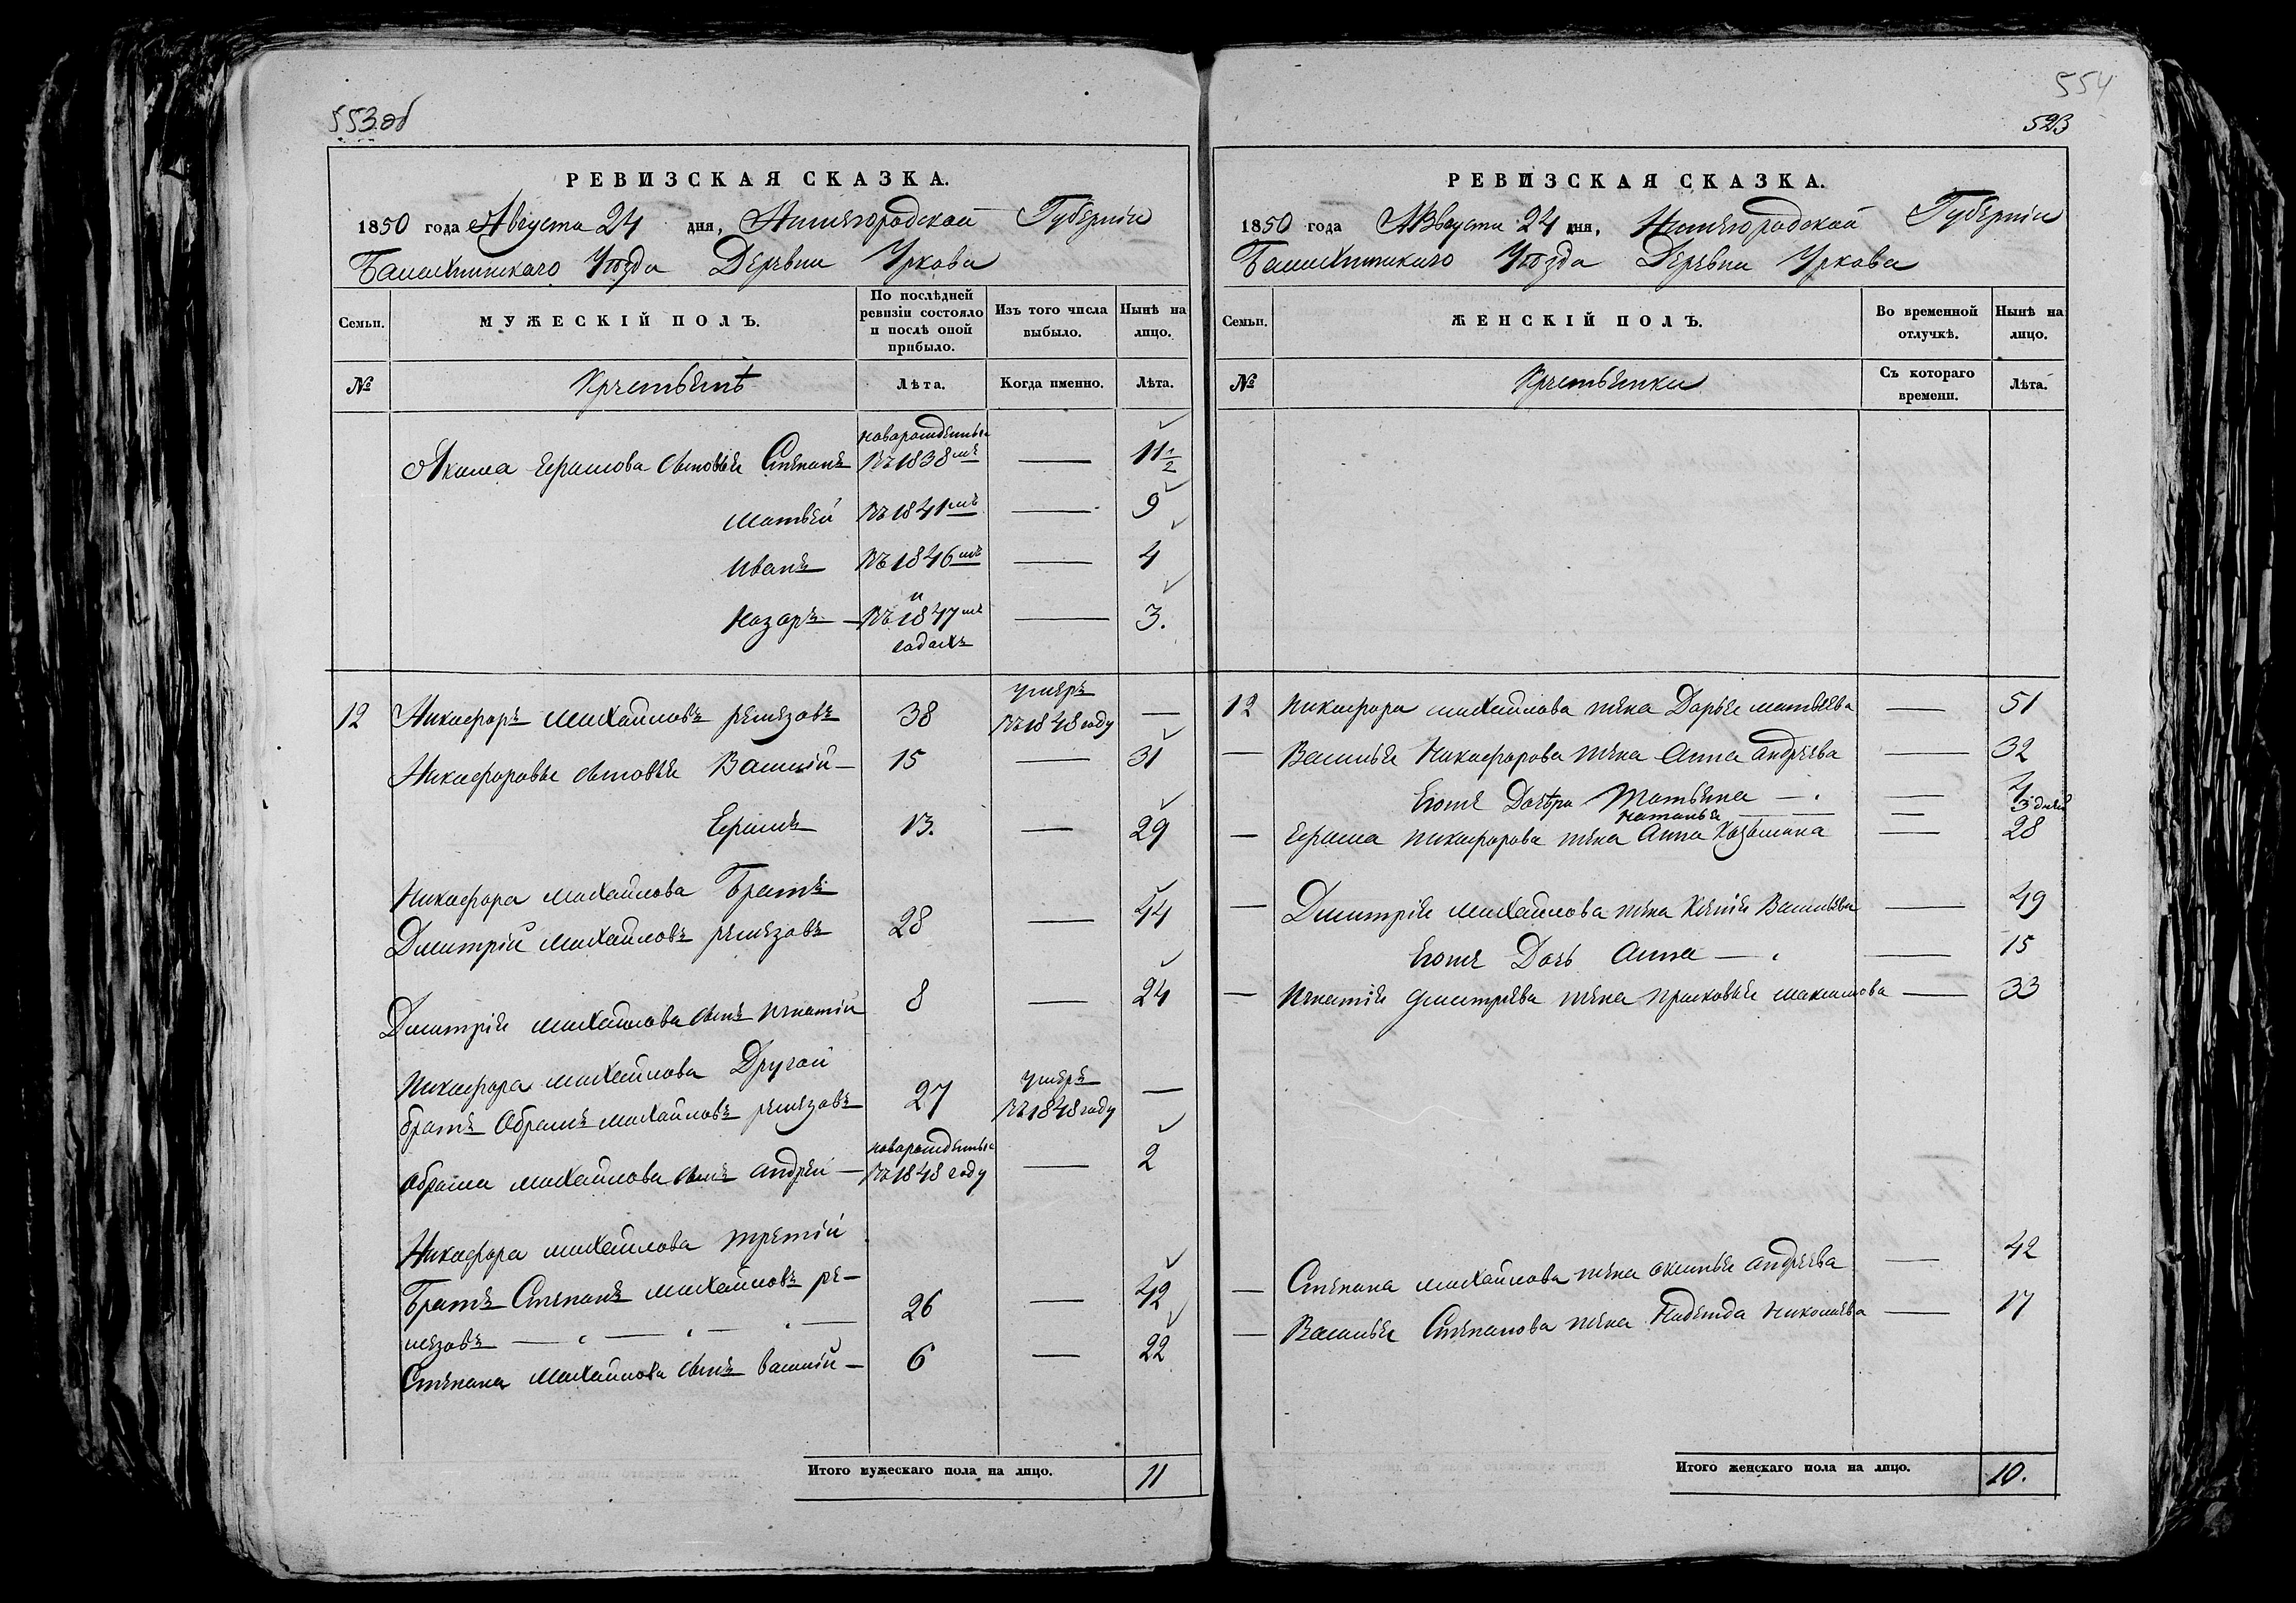 553об
РЕВИЗСКАЯ СКАЗКА.
1850 года Августа 24 дня, Нижегородской Губерніи
Балахнинскаго Уѣзда Деревни Уркова
Семьи.
МУЖЕСКІЙ ПОЛЪ.
По послѣдней ревизіи состояло и послѣ оной прибыло.
Изъ того числа выбыло.
Нынѣ на лицо.
№
Крестьянѣ
Лѣта.
Когда именно.
Лѣта.
Якима Ефимова сыновья Степанъ новорожденные въ 1838мъ — 11 1/2
Матвѣй въ 1841мъ — 9
Иванъ въ 1846мъ — 4
Назаръ — и въ 1847мъ годахъ — 3.
12 Никифоръ Михайловъ Ремезовъ 38 умеръ въ 1848 году —
Никифоровы сыновья Василій — 15 — 31
Ефимъ 13. — 29
Никифора Михайлова Братъ
Дмитрій Михайловъ Ремезовъ 28 — 44
Дмитрія Михайлова сынъ Игнатій 8 — 24
Никифора Михайлова Другой
братъ Обрамъ Михайловъ Ремезовъ 27 умеръ въ 1848 году —
Обрама Михайлова сынъ Андрей — новорожденные въ 1848 году — 2
Никифора Михайлова третій
Братъ Степанъ Михайловъ Ре-
мезовъ — 26 — 42
Степана Михайлова сынъ Василій — 6 — 22
Итого мужескаго пола на лицо. 11
554
523
РЕВИЗСКАЯ СКАЗКА.
1850 года Августа 24 дня, Нижегородской Губерніи
Балахнинскаго Уѣзда Деревни Уркова
Семьи.
ЖЕНСКІЙ ПОЛЪ.
Во временной отлучкѣ.
Нынѣ на лицо.
№
Крестьянки
Съ котораго времени.
Лѣта.
12 Никифора Михайлова жена Дарья Матвѣева — 51
— Василья Никифорова жена Анна Андреева — 32
Егоже Дочери Татьяна — — 4
Наталья — — 3 дней
— Ефима Никифорова жена Анна Козьмина — 28
— Дмитрія Михайлова жена Ксенія Васильева — 49
Егоже Дочь Анна — — 15
— Игнатія Дмитріева жена Прасковья Максимова — 33
— Степана Михайлова жена Аксинья Андреева — 42
— Василья Степанова жена Надежда Николаева — 17
Итого женскаго пола на лицо. 10.